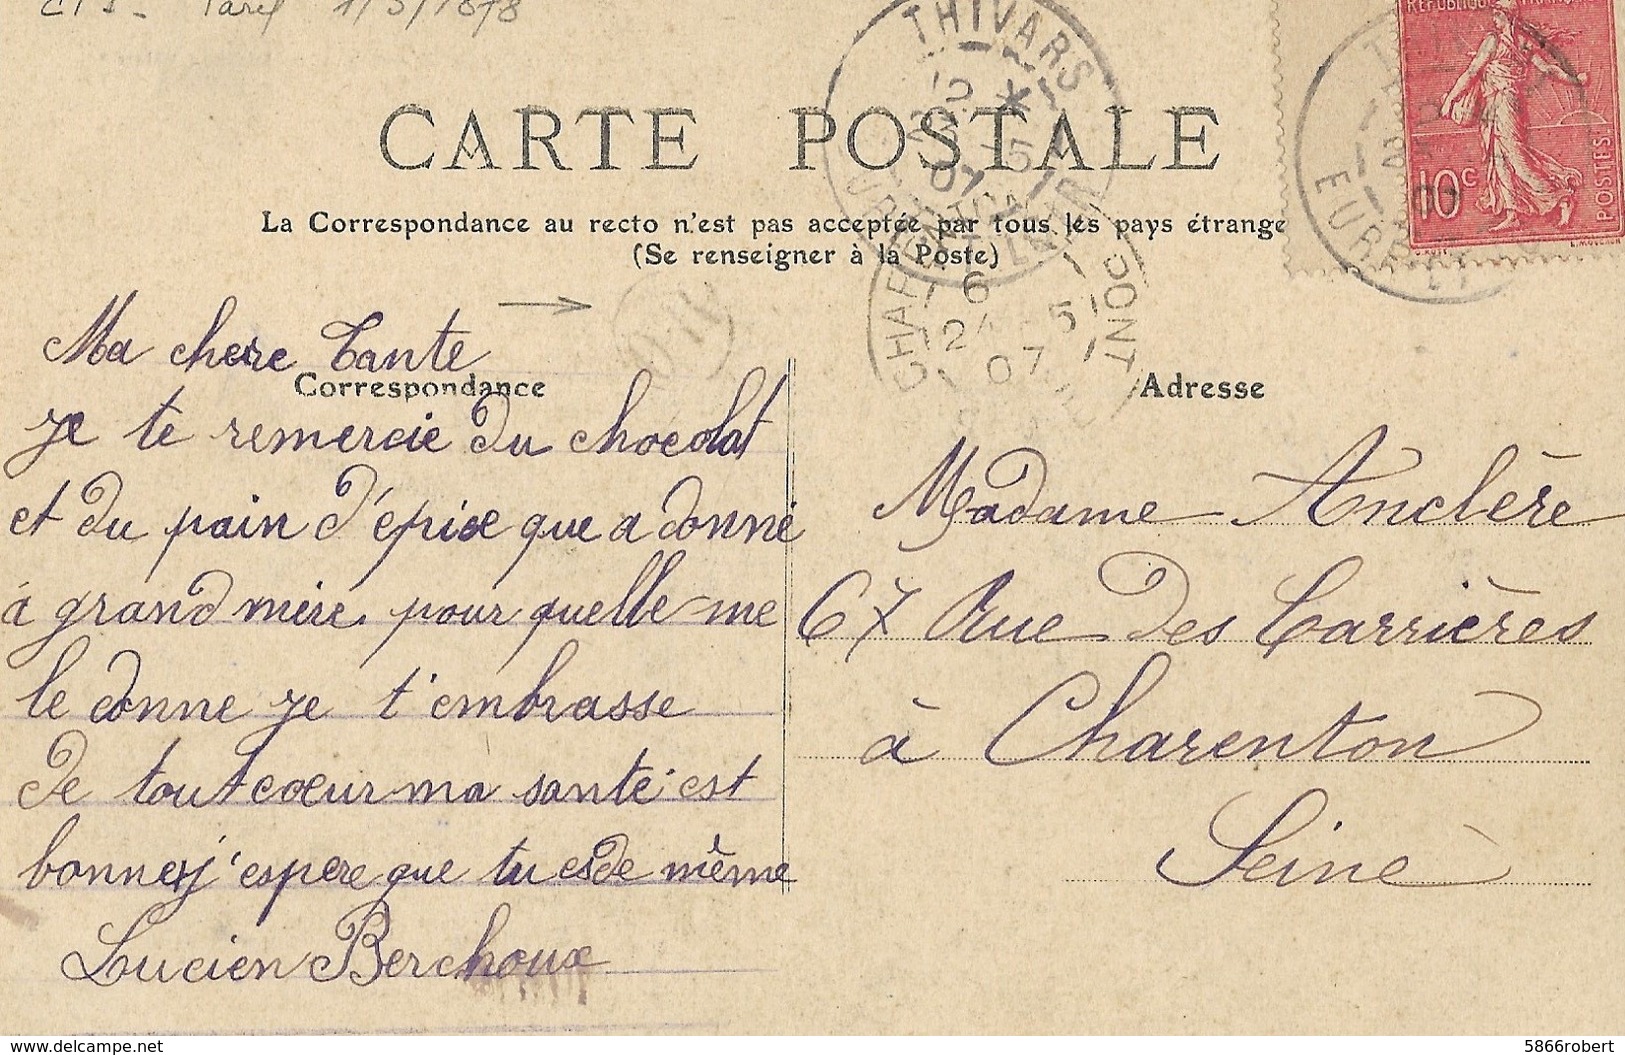 Tarif 1/5/1878
THIVARS
23 5 07
EURE
RÉPUBLIQUE FRANÇAISE
10c
POSTES
CARTE POSTALE
La Correspondance au recto n'est pas acceptée par tous les pays étrange
(Se renseigner à la Poste)
CHARENTON LE PONT
6
24 5
07
OR
Correspondance
Adresse
Ma chere Tante
je te remercie du chocolat
et du pain d'épice que a donné
à grand mère pour quelle me
le donne je t'embrasse
de tout coeur ma santé est
bonne j'espere que tu es de même
Lucien Berchoux
Madame Anclère
67 Rue des Carrières
à Charenton
Seine
www.delcampe.net
5866robert